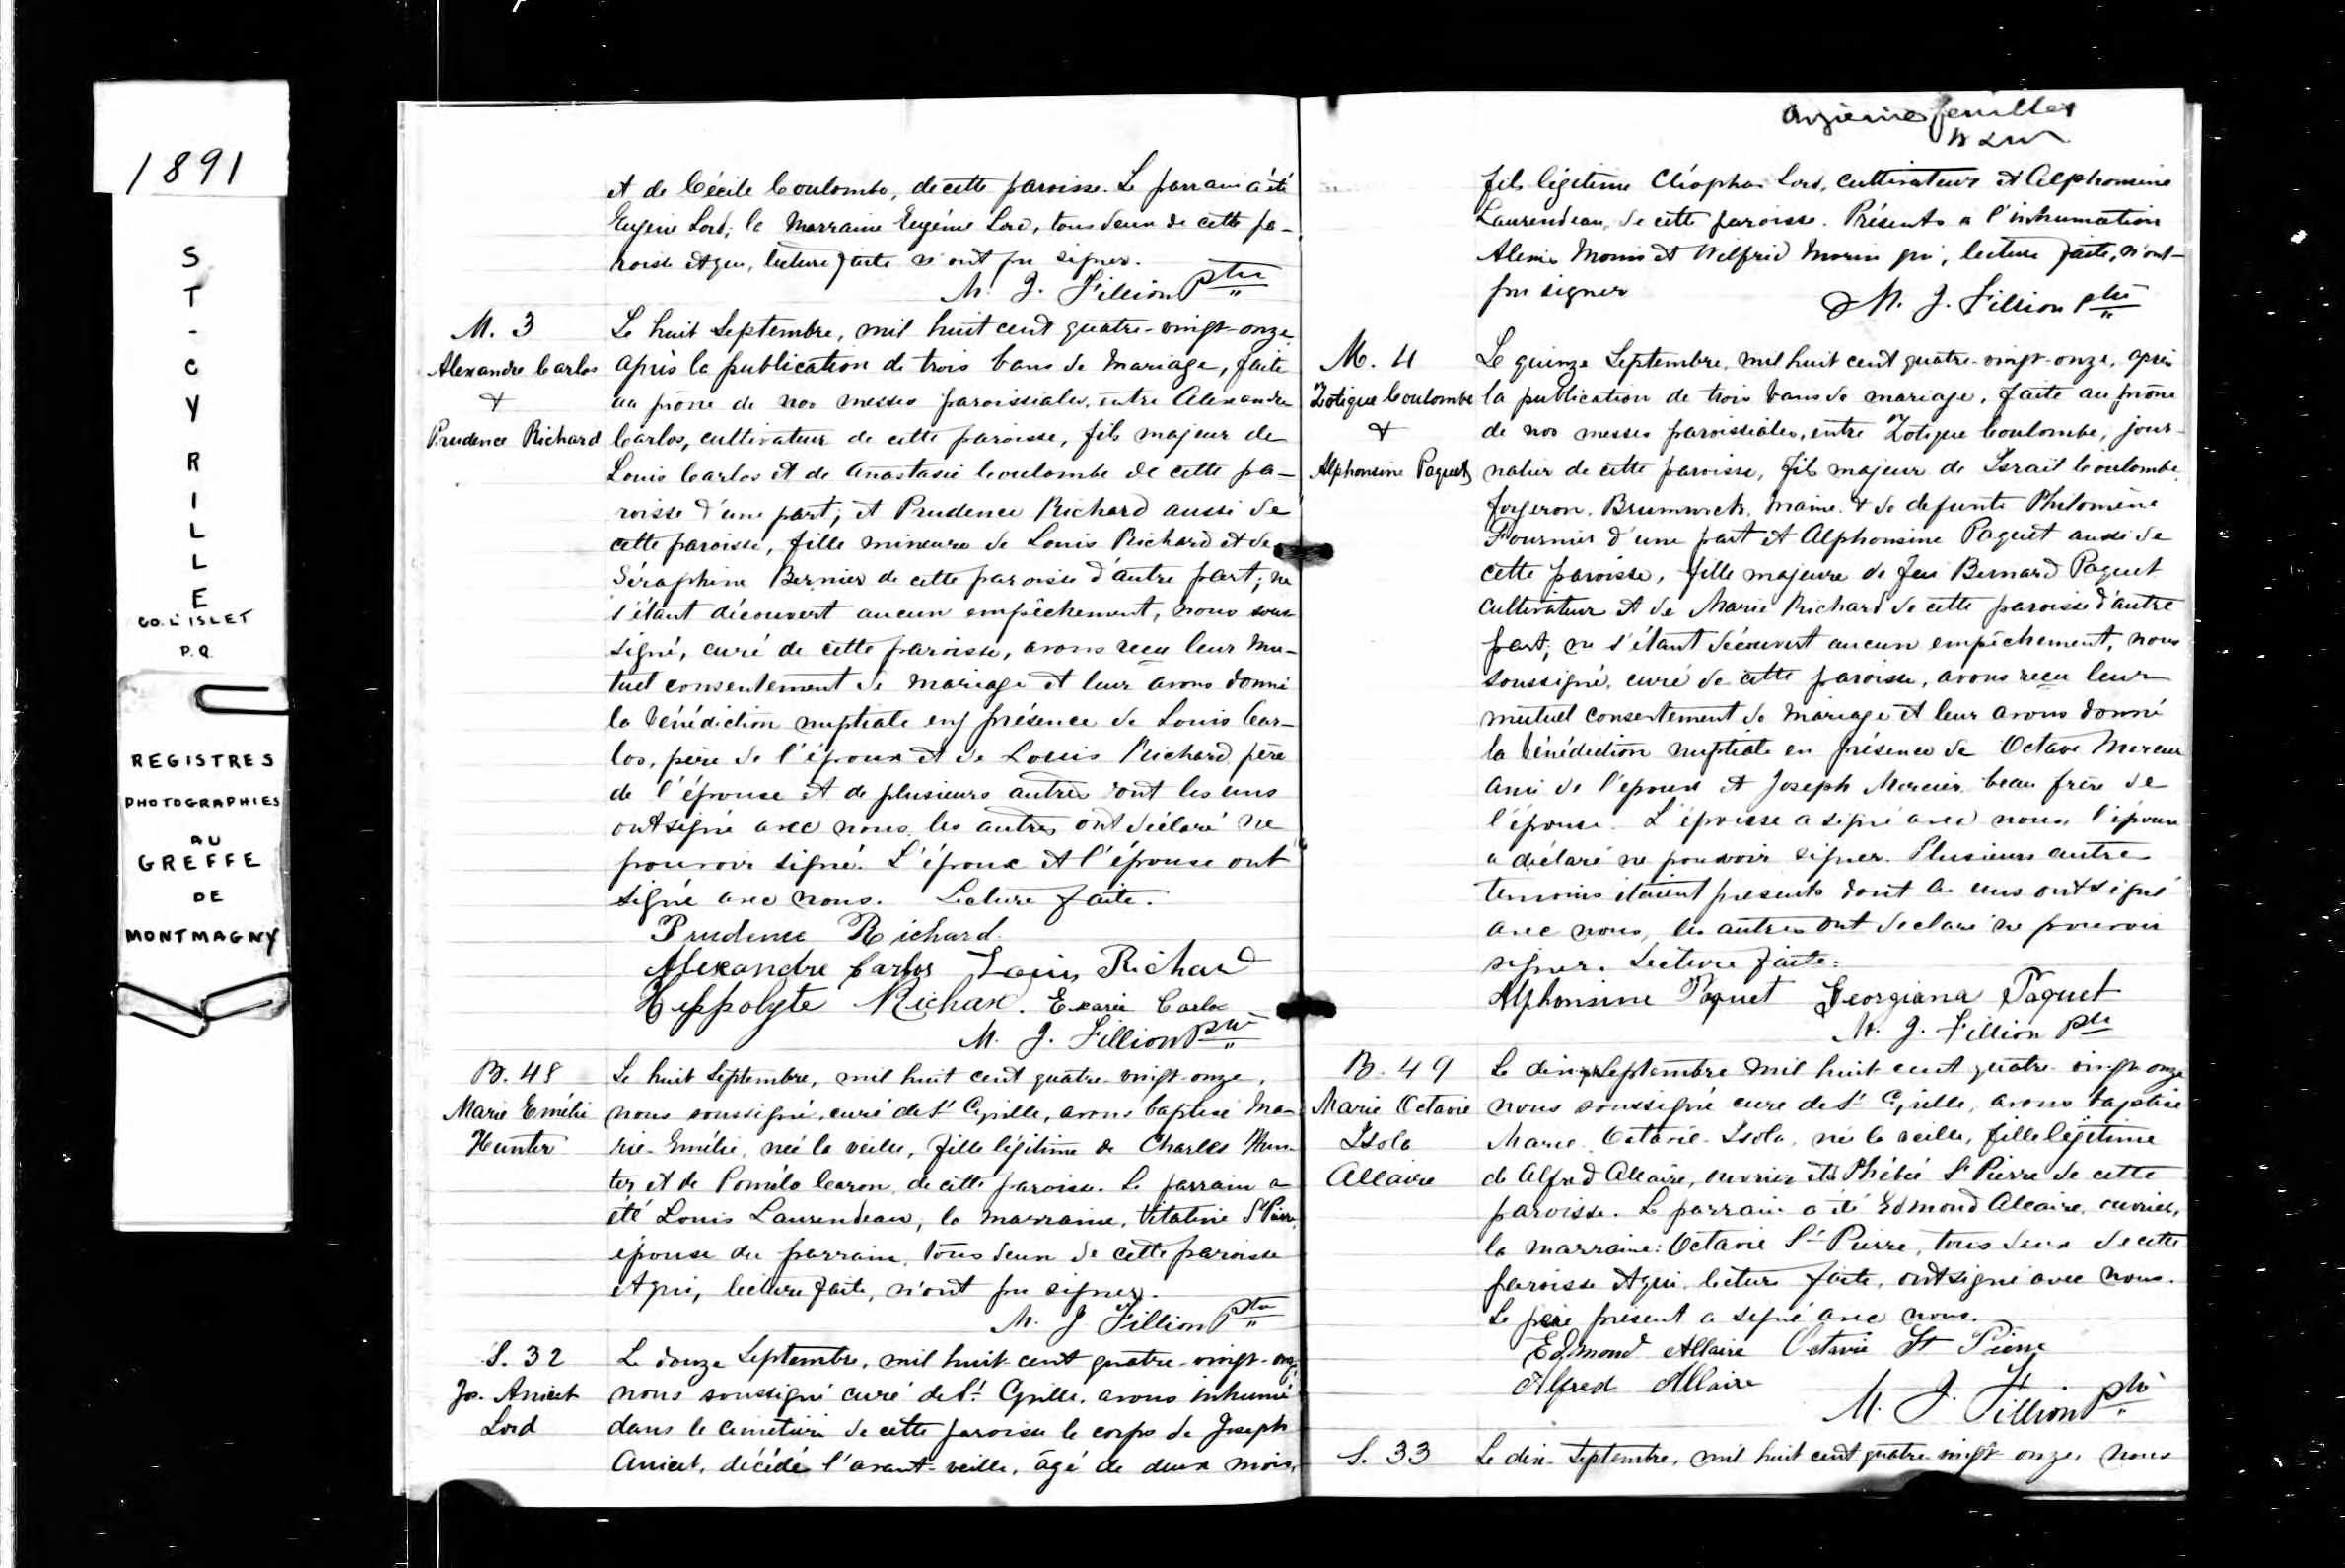 1891
ST-CYRILLE
CO. L'ISLET
P.Q.
REGISTRES
PHOTOGRAPHIES
AU
GREFFE
DE
MONTMAGNY
et de Cécile Coulombe, de cette paroisse. Le parrain a été
Eugène Lord; la Marraine Eugénie Lord, tous deux de cette pa-
roisse et qui, lecture faite n'ont pu signer.
M. J. Fillion Ptre
M. 3
Alexandre Carlos
&
Prudence Richard
Le huit Septembre, mil huit cent quatre-vingt-onze,
après la publication de trois bans de Mariage, faite
au prône de nos messes paroissiales, entre Alexandre
Carlos, cultivateur de cette paroisse, fils majeur de
Louis Carlos et de Anastasie Coulombe de cette pa-
roisse d'une part; et Prudence Richard aussi de
cette paroisse, fille mineure de Louis Richard et de
Séraphine Bernier de cette paroisse d'autre part; ne
s'étant découvert aucun empêchement, nous sous-
signé, curé de cette paroisse, avons reçu leur Mu-
tuel consentement de Mariage et leur avons donné
la bénédiction nuptiale en présence de Louis Car-
los, père de l'époux et de Louis Richard, père
de l'épouse et de plusieurs autres dont les uns
ont signé avec nous, les autres ont déclaré ne
pouvoir signé. L'époux et l'épouse ont
signé avec nous. Lecture faite.
Prudence Richard
Alexandre Carlos Louis Richard
Hippolyte Richard. Carlos
M. J. Fillion Ptre
B. 48
Marie Emélie
Hunter
Le huit Septembre, mil huit cent quatre-vingt-onze,
nous soussigné, curé de St Cyrille, avons baptisé Ma-
rie-Emélie, née la veille, fille légitime de Charles Hun-
ter et de Poméla Caron, de cette paroisse. Le parrain a
été Louis Laurendeau, la marraine, Vitaline St Pierre,
épouse du parrain, tous deux de cette paroisse
et qui, lecture faite, n'ont pu signer.
M. J. Fillion Ptre
S. 32
Jos. Anicet
Lord
Le douze Septembre, mil huit cent quatre-vingt-onze
nous soussigné curé de St Cyrille, avons inhumé
dans le Cimetière de cette paroisse le corps de Joseph
Anicet, décédé l'avant-veille, âgé de deux mois,
onzième feuillet
fils légitime Cléophas Lord, cultivateur et Alphonsine
Laurendeau, de cette paroisse. Présents à l'inhumation
Alexis Morin et Wilfrid Morin qui, lecture faite, n'ont
pu signer
M. J. Fillion Ptre
M. 4
Zotique Coulombe
&
Alphonsine Paquet
Le quinze Septembre, mil huit cent quatre-vingt-onze, après
la publication de trois bans de mariage, faite au prône
de nos messes paroissiales, entre Zotique Coulombe, jour-
nalier de cette paroisse, fils majeur de Israël Coulombe,
forgeron, Brunswick, Maine, & de defunte Philomène
Fournier d'une part et Alphonsine Paquet aussi de
cette paroisse, fille majeure de feu Bernard Paquet
cultivateur et de Marie Richard de cette paroisse d'autre
part; ne s'étant découvert aucun empêchement, nous
soussigné, curé de cette paroisse, avons reçu leur
mutuel consentement de Mariage et leur avons donné
la bénédiction nuptiale en présence de Octave
ami de l'epoux et Joseph Mercier beau frère de
l'épouse. L'épouse a signé avec nous, l'époux
a déclaré ne pouvoir signer. Plusieurs autre
temoins étaient presents dont les uns ont signé
avec nous, les autres ont declaré ne pouvoir
signer. Lecture faite.
Alphonsine Paquet Georgiana Paquet
M. J. Fillion Ptre
B. 49
Marie Octavie
Isola
Allaire
Le dix Septembre mil huit cent quatre-vingt-onze
nous soussigné curé de St Cyrille, avons baptisé
Marie Octavie Isola, née la veille, fille légitime
de Alfred Allaire, ouvrier et de Phébée St Pierre de cette
paroisse. Le parrain a été Edmond Allaire, ouvrier,
la marraine: Octavie St Pierre, tous deux de cette
paroisse et qui, lecture faite, ont signé avec nous.
Le père présent a signé avec nous.
Edmond Allaire Octavie St Pierre
Alfred Allaire
M. J. Fillion Ptre
S. 33
Le dix-Septembre, mil huit cent quatre-vingt-onze, nous